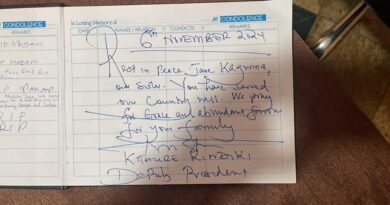 CONDOLENCE
REMARKS
P MADAM
R I P
R I P
In Loving Memory of
CONDOLENCE
DATE
NAMES / RELATION
CONTACTS
REMARKS
6th NOVEMBER 2024
Rest in Peace, Jane Kagwiria,
our Sister. You have served
our Country well. We pray
for Grace and abundant favour
for your family
KITHURE KINDIKI
Deputy President